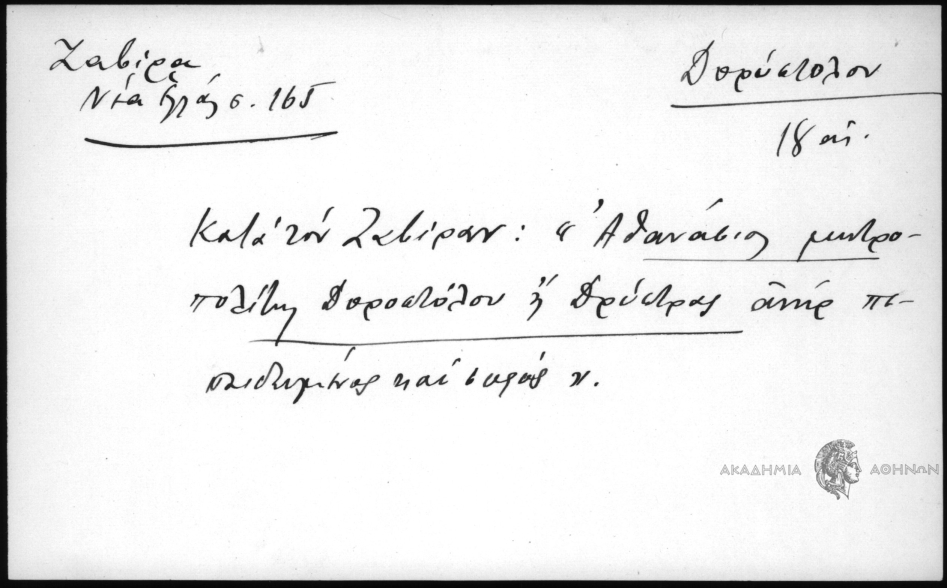 Ζαβίρα
Νέα Ἑλλάς σ. 165
Δορύστολον
18 αἰ.
Κατὰ τὸν Ζαβίραν: « Ἀθανάσιος μητρο-
πολίτης Δοροστόλου ἢ Δρύστρας ἀνὴρ πε-
παιδευμένος καὶ σοφός».
ΑΚΑΔΗΜΙΑ ΑΘΗΝΩΝ